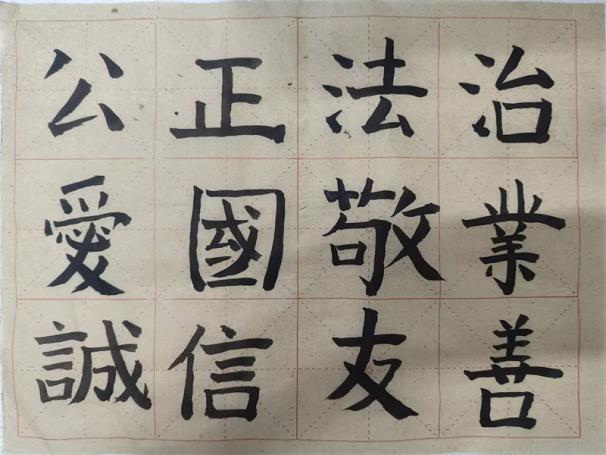 公正法治
愛國敬業
誠信友善